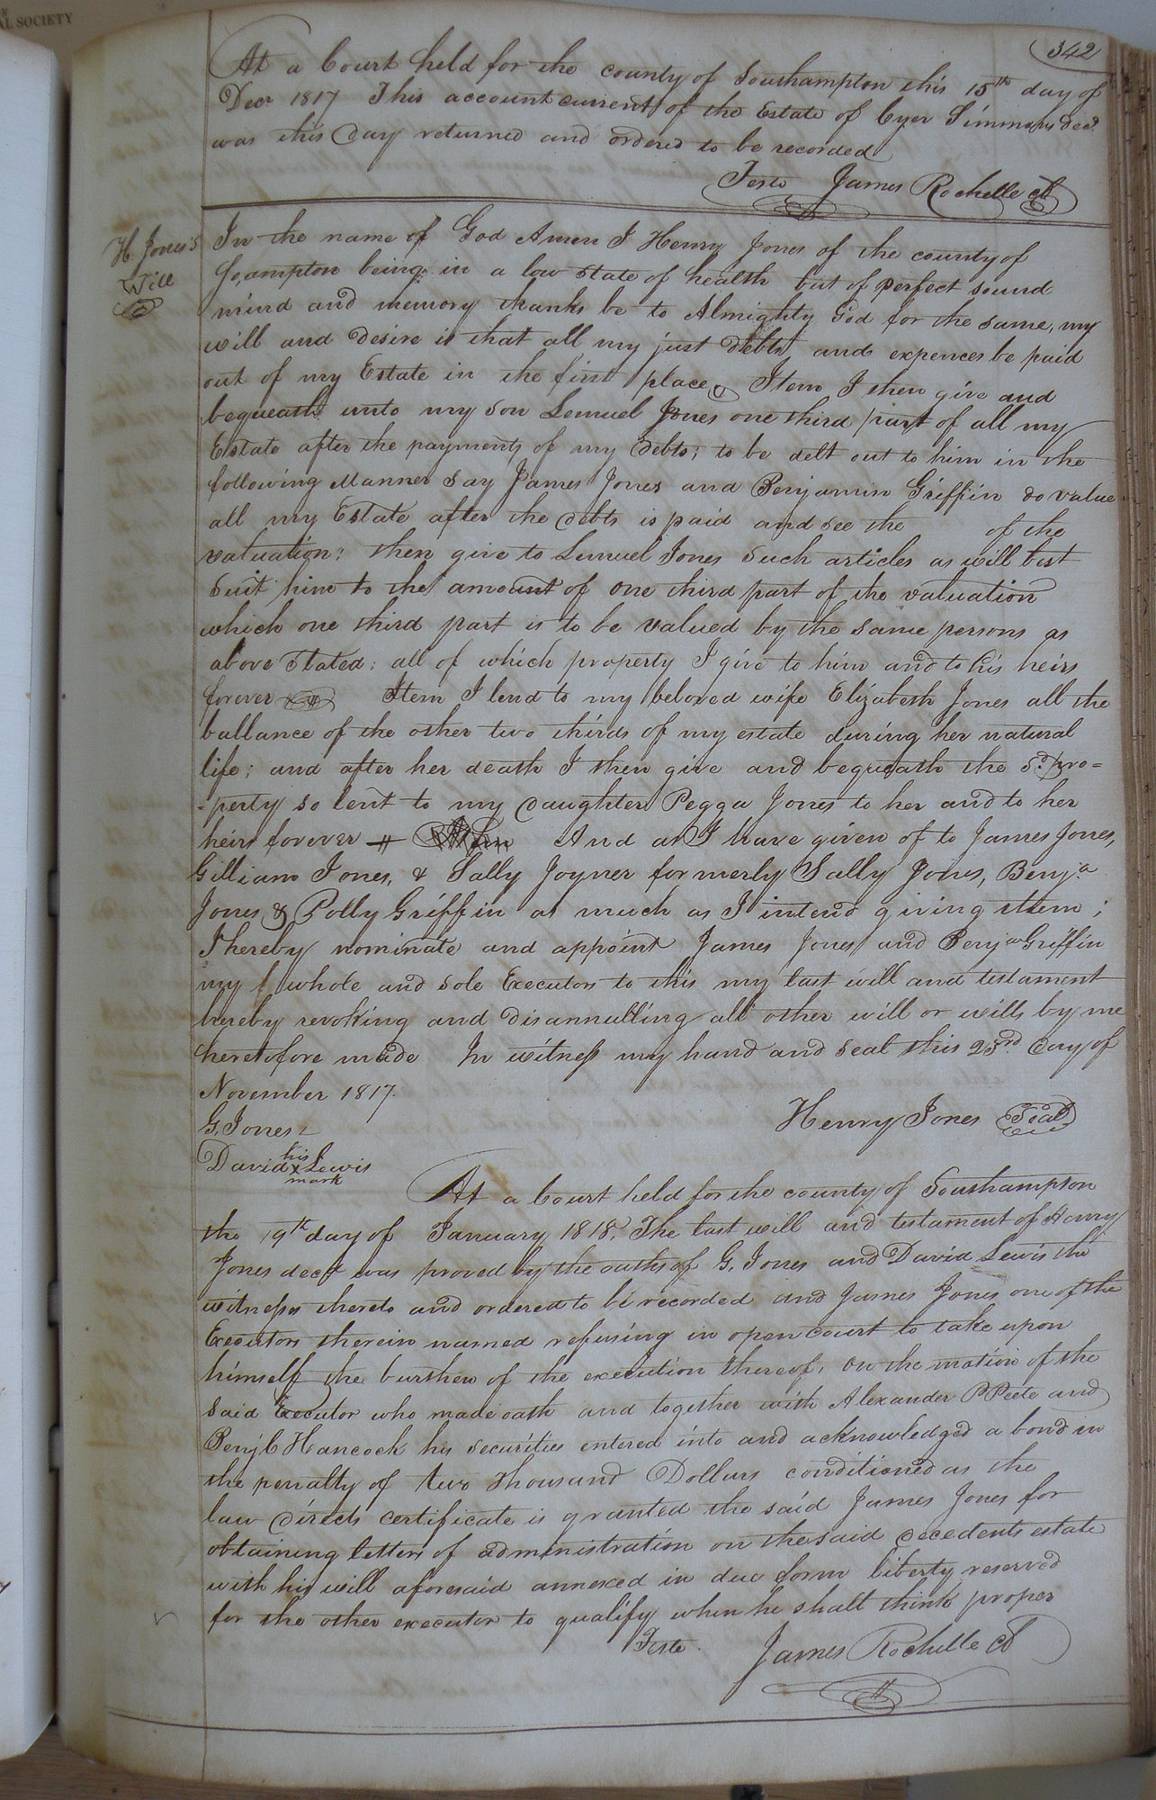 AL SOCIETY
342
At a Court held for the county of Southampton this 15th day of
Decr 1817 This account current of the Estate of Cyer Simmons decd
was this day returned and ordered to be recorded
Teste James Rochelle
H. Jones's
Will
In the name of God Amen I Henry Jones of the county of
So,ampton being in a low state of health but of perfect sound
mind and memory thanks be to Almighty God for the same, my
will and desire is that all my just debts and expences be paid
out of my Estate in the first place Item I then give and
bequeath unto my son Lemuel Jones one third part of all my
Estate after the payments of my debts; to be delt out to him in the
following Manner Say James Jones and Benjamin Griffin do value
all my Estate after the debts is paid and see the of the
valuation: then give to Lemuel Jones such articles as will best
suit him to the amount of one third part of the valuation
which one third part is to be valued by the same persons as
above stated: all of which property I give to him and to his heirs
forever Item I lend to my beloved wife Elizabeth Jones all the
ballance of the other two thirds of my estate during her natural
life; and after her death I then give and bequeath the sd. pro=
-perty so lent to my daughter Pegga Jones to her and to her
heirs forever And as I have given of to James Jones,
Gilliam Jones, & Sally Joyner formerly Sally Jones, Benja
Jones & Polly Griffin as much as I intend giving them;
I hereby nominate and appoint James Jones and Benja Griffin
my whole and sole Executors to this my last will and testament
hereby revoking and disannulling all other will or wills by me
heretofore made In witness my hand and seal this 23rd day of
November 1817.
Henry Jones Seal
G. Jones
David his x mark Lewis
At a Court held for the county of Southampton
the 19th day of January 1818. The last will and testament of Henry
Jones decd was proved by the oaths of G. Jones and David Lewis the
witnesses thereto and ordered to be recorded and James Jones one of the
Executors therein named refusing in open court to take upon
himself the burthen of the execution thereof, on the motion of the
said Executor who made oath and together with Alexander P Peete and
Benj C Hancock his securities entered into and acknowledged a bond in
the penalty of two thousand Dollars conditioned as the
law directs certificate is granted the said James Jones for
obtaining letters of administration on the said decedents estate
with his will aforesaid annexed in due form liberty reserved
for the other executor to qualify when he shall think proper
Teste. James Rochelle